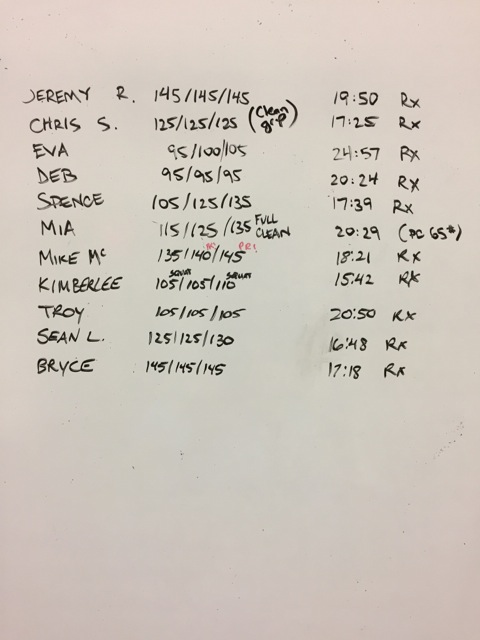 JEREMY R. 145/145/145 19:50 Rx
CHRIS S. 125/125/125 (Clean grip) 17:25 Rx
EVA 95/100/105 24:57 Rx
DEB 95/95/95 20:24 Rx
SPENCE 105/125/135 17:39 Rx
MIA 115/125/135 FULL CLEAN 20:29 (PC 65#)
MIKE MC 135/140/145 PR! 18:21 Rx
KIMBERLEE 105/105/110 SQUAT SQUAT 15:42 Rx
TROY 105/105/105 20:50 Rx
SEAN L. 125/125/130 16:48 Rx
BRYCE 145/145/145 17:18 Rx